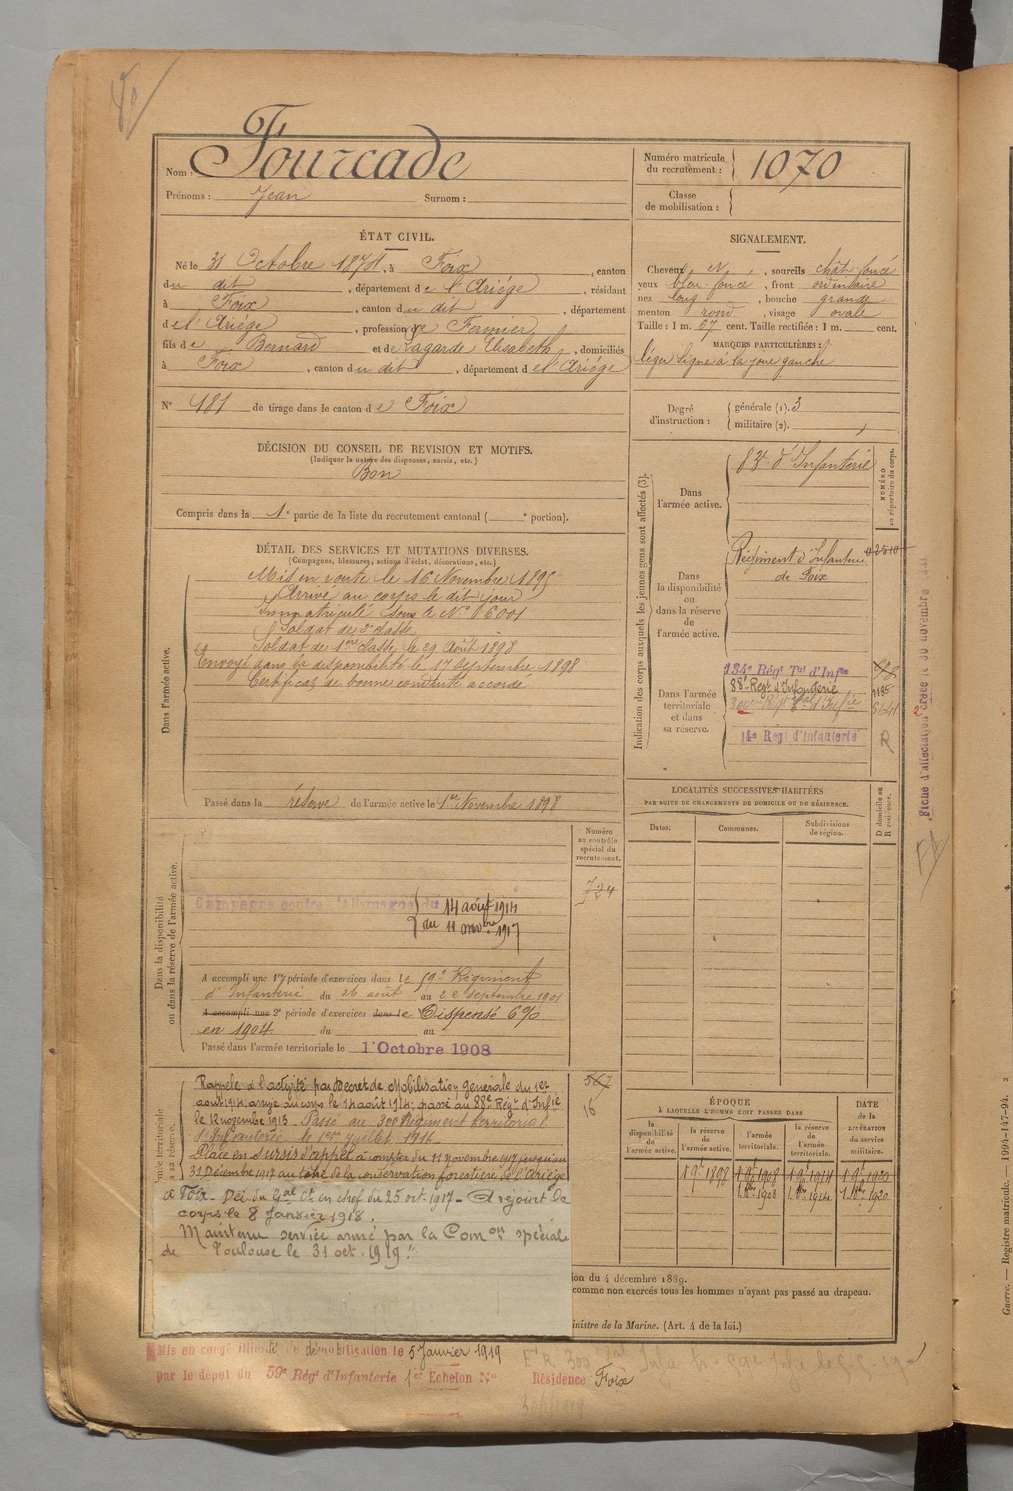 Fourcade
Nom :
Prénoms : Jean Surnom :
Numéro matricule du recrutement : 1070
Classe de mobilisation :
ÉTAT CIVIL.
Né le 31 Octobre 1874, à Foix, canton
du dit, département de l'Ariége, résidant
à Foix, canton du dit, département
de l'Ariége, profession de Fermier,
fils de Bernard et de Lagarde Elisabeth, domiciliés
à Foix, canton du dit, département de l'Ariége
N° 181 de tirage dans le canton de Foix
SIGNALEMENT.
Cheveux N, sourcils chât foncé
yeux bleu-foncé, front ordinaire
nez long, bouche grande
menton rond, visage ovale
Taille : 1 m. 67 cent. Taille rectifiée : 1 m. cent.
MARQUES PARTICULIÈRES :
léger signe à la joue gauche
Degré d'instruction : générale (1). 3
militaire (2).
DÉCISION DU CONSEIL DE REVISION ET MOTIFS.
(Indiquer la nature des dispenses, sursis, etc.)
Bon
Compris dans la 1e partie de la liste du recrutement cantonal ( e portion).
DÉTAIL DES SERVICES ET MUTATIONS DIVERSES.
(Campagnes, blessures, actions d'éclat, décorations, etc.)
Dans l'armée active.
Mis en route le 16 Novembre 1895
Arrivé au corps le dit jour
Immatriculé sous le N° 6001
Soldat de 2e classe
Soldat de 1ère classe le 29 Août 1898
Envoyé dans la disponibilité le 17 Septembre 1898
Certificat de bonne conduite accordé
Passé dans la réserve de l'armée active le 1er Novembre 1898
Indication des corps auxquels les jeunes gens sont affectés (3).
NUMÉRO au répertoire du corps.
Dans l'armée active.
83e d'Infanterie
Dans la disponibilité ou dans la réserve de l'armée active.
Régiment d'Infanterie
de Foix
Dans l'armée territoriale et dans sa réserve.
134e Régt Tal d'Infie
88e Régt d'Infanterie
1185
300ème Régt Tal d'Infie
14e Régt d'Infanterie
R
Fiche d'affectation créée le 30 novembre
LOCALITÉS SUCCESSIVES HABITÉES
PAR SUITE DE CHANGEMENTS DE DOMICILE OU DE RÉSIDENCE.
D domicile ou R résidence.
Dates: Communes. Subdivisions de région.
Numéro au contrôle spécial du recrutement.
724
Dans la disponibilité ou dans la réserve de l'armée active.
Campagne contre l'Allemagne du 14 août 1914
au 11 novbre 1917
A accompli une 1re période d'exercices dans le 59e Régiment
d'Infanterie du 26 août au 22 septembre 1901
A accompli une 2e période d'exercices dans le Dispensé 6%
en 1904 du au
Passé dans l'armée territoriale le 1er Octobre 1908
567
16
Rappelé à l'activité par Décret de Mobilisation générale du 1er
août 1914, arrivé au corps le 14 août 1914; passé au 88e Régt d'Infie
le 12 novembre 1915 Passé au 300 Régiment territorial
d'Infanterie le 1er juillet 1916.
Placé en sursis d'appel à compter du 11 Novembre 1917 jusqu'au
31 Décembre 1917 au titre de la conservation forestière de l'Ariège
à Foix. Déc. du Gal Ct en chef du 25 oct. 1917 - A rejoint le
corps le 8 Janvier 1918.
Maintenu service armé par la Comon spéciale
de Toulouse le 31 oct. 1919
ÉPOQUE
À LAQUELLE L'HOMME DOIT PASSER DANS
DATE de la LIBÉRATION du service militaire.
la disponibilité de l'armée active.
la réserve de l'armée active.
l'armée territoriale.
la réserve de l'armée territoriale.
1 9e 1898 1 9e 1908 1 9e 1914 1 9e 1920
1 9bre 1908 1 9bre 1914 1 9bre 1920
ion du 4 décembre 1889.
comme non exercés tous les hommes n'ayant pas passé au drapeau.
inistre de la Marine. (Art. 4 de la loi.)
Mis en congé illimité de démobilisation le 5 Janvier 1919
par le dépôt du 59e Régt d'Infanterie 1er Echelon N°
Résidence Foix
Guerre. — Registre matricule. — 1994-147-94.